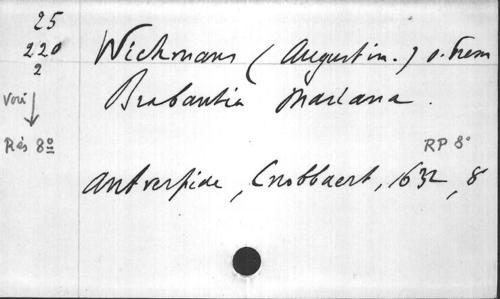 25
220
2
Voir
Rés 8º
Wichmans (Augustin.) o. Prem
Brabantia Mariana.
RP 8º
Antverpiae, Cnobbaert, 1632, 8